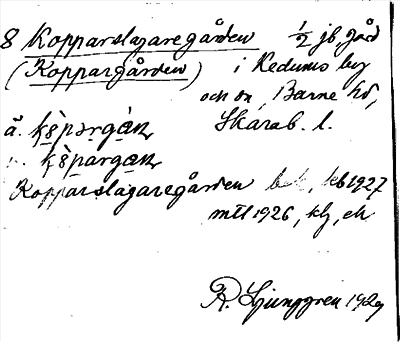 8 Kopparslagaregården 1/2 jb. gård
(Koppargården) i Kedums by
och sn, Barne hd,
Skarab. l.
ä.
Kopparslagaregården kb 1927
mtl 1926,
R. Ljunggren 1929